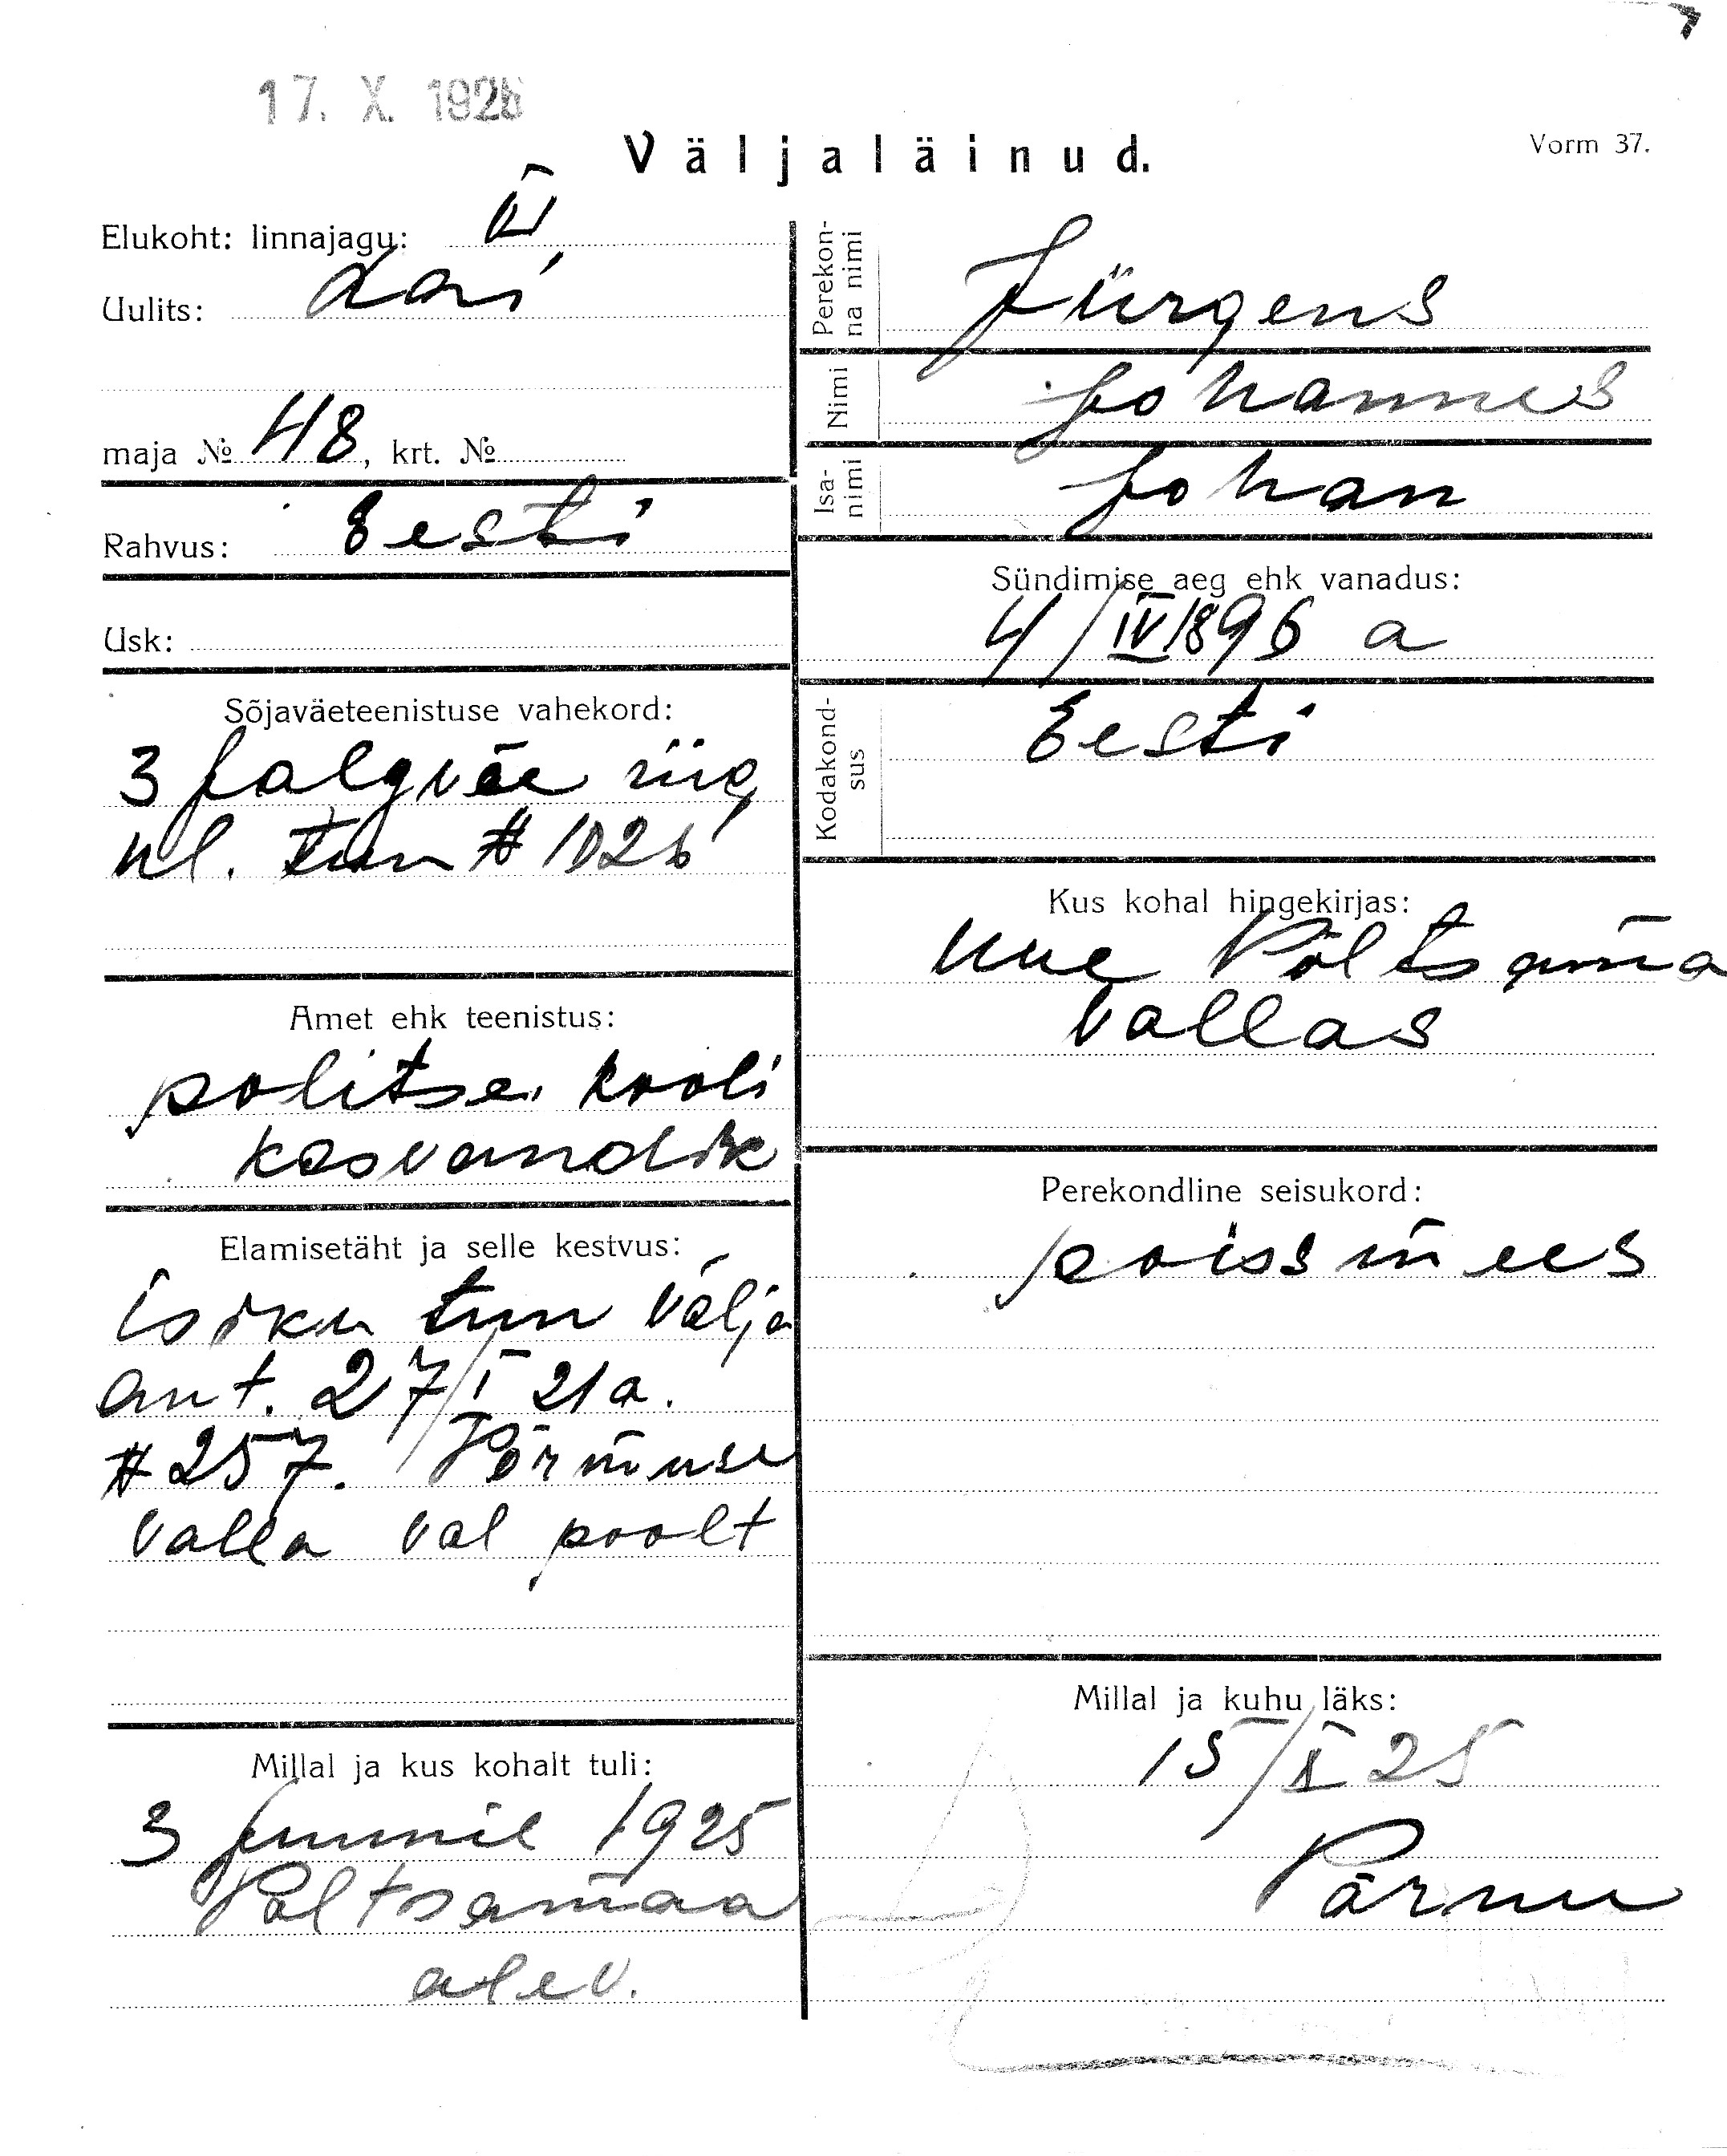 17. X. 1925
Väljaläinud.
Vorm 37.
Elukoht: linnajagu: VI
Uulits: Lai
maja № 48, krt. №
Rahvus: Eesti
Usk:
Sõjaväeteenistuse vahekord:
3 Jalgväe
№ 1026
Amet ehk teenistus:
politsei kooli
kasvandik
Elamisetäht ja selle kestvus:
isiku tun välja
ant. 27/I 21 a.
№ 257. Põrmuse
Valla val poolt
Millal ja kus kohalt tuli:
3 Juunil 1925
Põltsamaa
alev.
Perekon-
na nimi
Jürgens
Nimi
Johannes
Isa-
nimi
Johan
Sündimise aeg ehk vanadus:
4/IV 1896 a
Kodakond-
sus
Eesti
Kus kohal hingekirjas:
Uue Põltsama
Vallas
Perekondline seisukord:
poissmees
Millal ja kuhu läks:
15/X 25
Pärnu